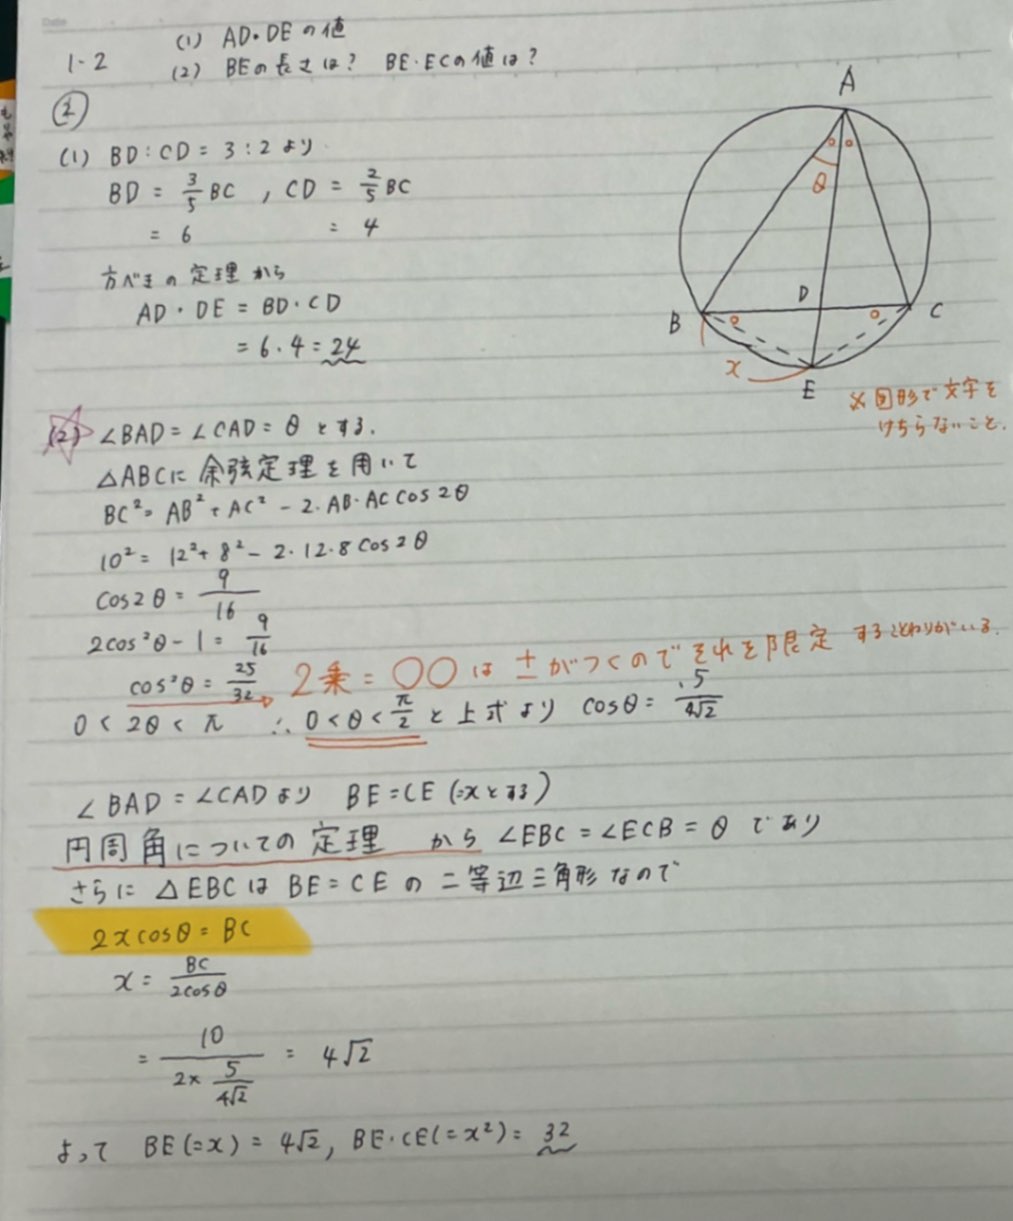 Date
1-2 (1) AD・DEの値
(2) BEの長さは? BE・ECの値は?
②
(1) BD:CD = 3:2より
BD = 3/5 BC , CD = 2/5 BC
= 6 = 4
方べきの定理から
AD・DE = BD・CD
= 6・4 = 24
A
θ
D
B
C
x
E
※図形で文字を
けちらないこと.
(2) ∠BAD = ∠CAD = θ とする.
△ABCに余弦定理を用いて
BC² = AB² + AC² - 2・AB・AC cos2θ
10² = 12² + 8² - 2・12・8 cos2θ
cos2θ = 9/16
2cos²θ - 1 = 9/16
cos²θ = 25/32 2乗=○○は±がつくのでそれを限定することわりがいる.
0 < 2θ < π ∴ 0 < θ < π/2 と上式より cosθ = 5/4√2
∠BAD = ∠CADより BE = CE (=xとする)
円周角についての定理 から ∠EBC = ∠ECB = θ であり
さらに △EBCは BE = CE の二等辺三角形なので
2xcosθ = BC
x = BC/2cosθ
= 10/(2× 5/4√2) = 4√2
よって BE(=x) = 4√2, BE・CE(=x²) = 32